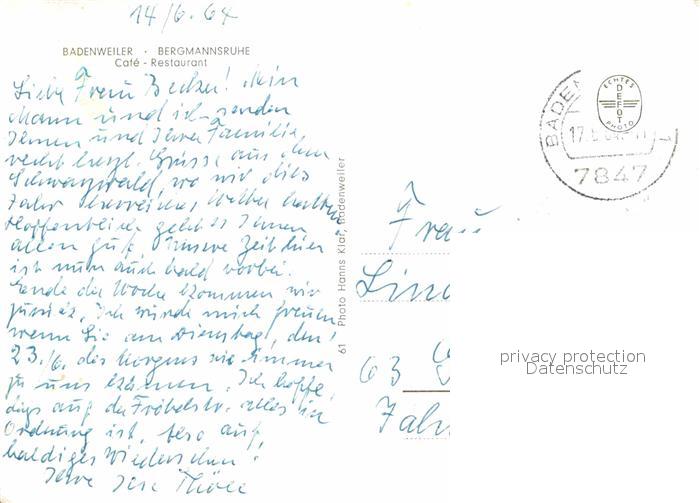 14/6.64
BADENWEILER · BERGMANNSRUHE
Café - Restaurant
Liebe Frau Becker! Mein
Mann und ich senden
Ihnen und Ihrer Familie
recht herzl. Grüsse aus dem
Schwarzwald, wo wir dies
Jahr Wetter hatten
Hoffentlich geht es Ihnen
allen gut. Unsere Zeit hier
ist nun auch bald vorbei.
Ende der Woche kommen wir
zurück. Ich würde mich freuen
wenn Sie am Dienstag, den
23./6. des Morgens wie immer
zu uns kämen. Ich hoffe,
dass auf der Fröbelstr. alles in
Ordnung ist. Also auf
baldiges Wiedersehen!
Ihre
61 Photo Hanns Klar, Badenweiler
BADEN
7847
ECHTES
DEFOT
PHOTO
Frau
63
privacy protection
Datenschutz